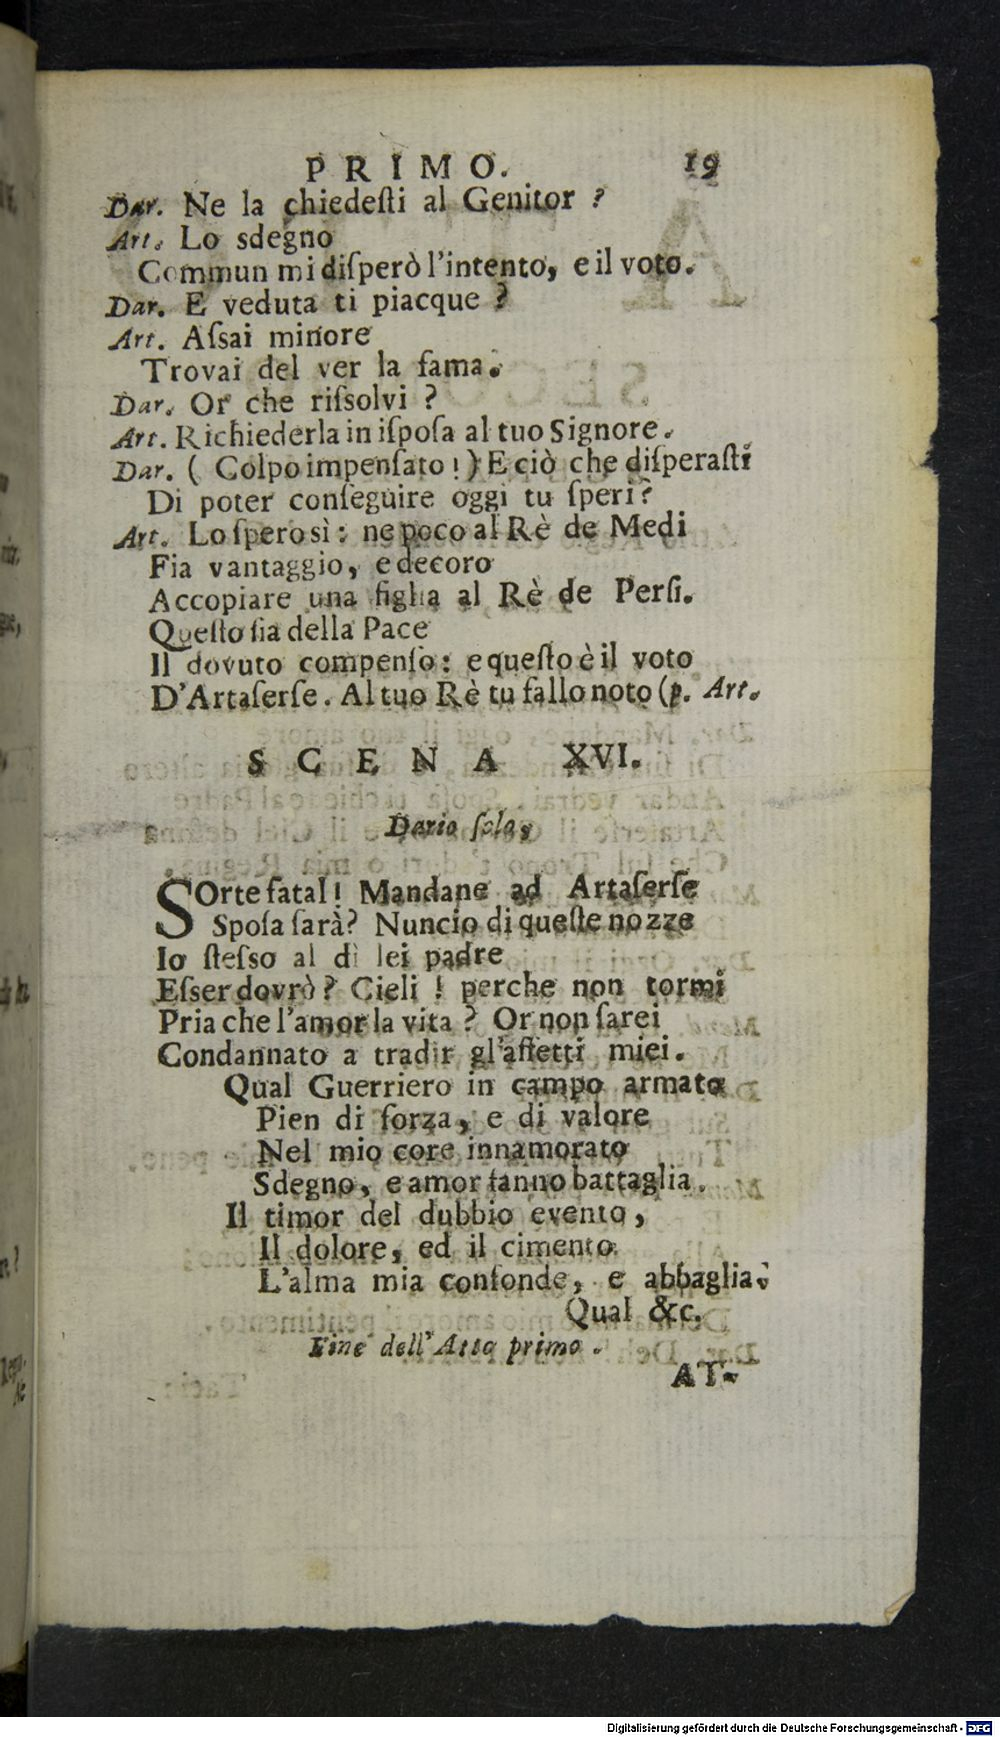 PRIMO. 19
Dar. Ne la chiedeſti al Genitor ?
Art. Lo sdegno
Commun mi diſperò l'intento, e il voto.
Dar. E veduta ti piacque ?
Art. Aſsai minore
Trovai del ver la fama.
Dar. Or che riſsolvi ?
Art. Richiederla in iſpoſa al tuo Signore.
Dar. ( Colpo impenſato ! ) E ciò che diſperaſti
Di poter conſeguire oggi tu ſperi ?
Art. Lo ſpero sì : ne poco al Rè de Medi
Fia vantaggio, e decoro
Accopiare una figlia al Rè de Perſi.
Queſto ſia della Pace
Il dovuto compenſo : e queſto è il voto
D'Artaſerſe. Al tuo Rè tu fallo noto (p. Art.
SCENA XVI.
Dario ſolo,
SOrte fatal ! Mandane ad Artaſerſe
Spoſa ſarà ? Nuncio di queſte nozze
Io ſteſso al di lei padre
Eſser dovrò ? Cieli ! perche non tormi
Pria che l'amor la vita ? Or non ſarei
Condannato a tradir gl'affetti miei.
Qual Guerriero in campo armato
Pien di forza, e di valore
Nel mio core innamorato
Sdegno, e amor fanno battaglia.
Il timor del dubbio evento,
Il dolore, ed il cimento
L'alma mia confonde, e abbaglia.
Qual &c.
Fine dell'Atto primo.
AT-
Digitalisierung gefördert durch die Deutsche Forschungsgemeinschaft - DFG